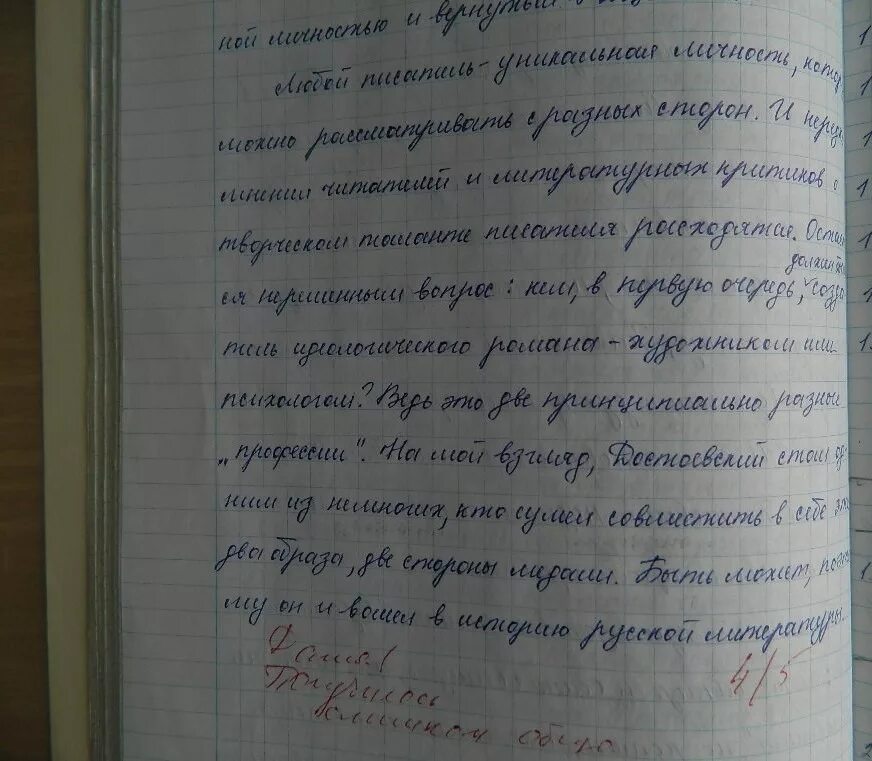 ной личностью и вернутый в
Любой писатель - уникальная личность, котор
можно рассматривать с разных сторон. И неред
мнения читателей и литературных критиков о
творческом таланте писателя расходятся. Остаё
должен быть
ся нерешенным вопрос: кем, в первую очередь, созда
тель идеологического романа - художником или
психологом? Ведь это две принципиально разные
„профессии". На мой взгляд, Достоевский стал од-
ним из немногих, кто сумел совместить в себе эти
два образа, две стороны медали. Быть может, поэто
му он и вошел в историю русской литературы.
Получилось 4/5
слишком общо
1
1
1
1
1
1